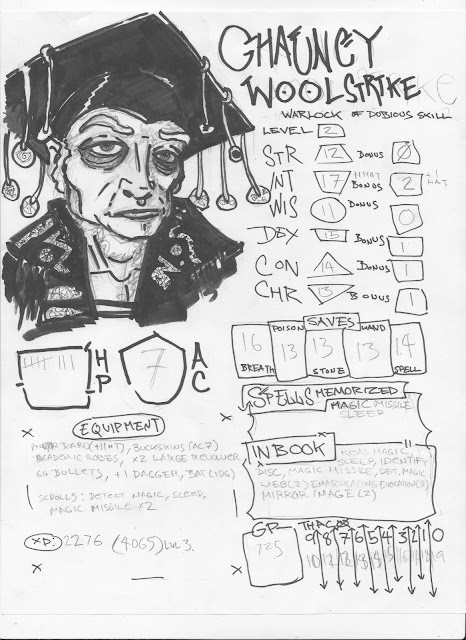 CHAUNCY
WOOLSTRIKE
WARLOCK OF DUBIOUS SKILL
LEVEL 2
STR 12 BONUS 0
INT 17 BONUS 2 +1 HAT
WIS 11 BONUS 0
DEX 15 BONUS 1
CON 14 BONUS 1
CHR 13 BONUS 1
SAVES
POISON WAND
16 13 13 13 14
BREATH STONE SPELL
HP
7 AC
SPELLS MEMORIZED
MAGIC MISSILE
SLEEP
EQUIPMENT
(+1 INT), BUCKSKINS (AC7)
ACADEMIC ROBES, X2 LARGE REVOLVER
60 BULLETS, +1 DAGGER, BAT (1D6)
SCROLLS: DETECT MAGIC, SLEEP,
MAGIC MISSILE X2
IN BOOK
READ MAGIC,
SLEEP, IDENTIFY
DISC, MAGIC MISSILE, DET. MAGIC
WEB (2) EMASCULATING EVOCATION (2)
MIRROR IMAGE (2)
XP: 2276 (4065) LVL 3.
GP
725
THACO
9 8 7 6 5 4 3 2 1 0